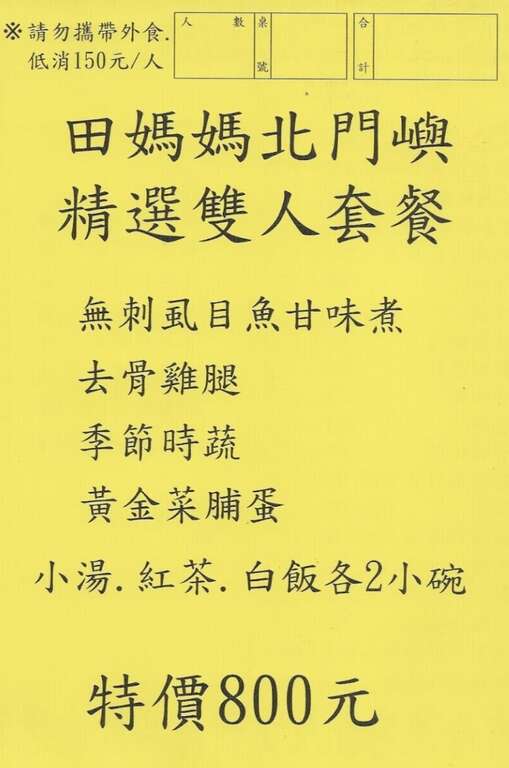 ※請勿攜帶外食.
低消150元/人
人數
桌號
合計
田媽媽北門嶼
精選雙人套餐
無刺虱目魚甘味煮
去骨雞腿
季節時蔬
黃金菜脯蛋
小湯.紅茶.白飯各2小碗
特價800元